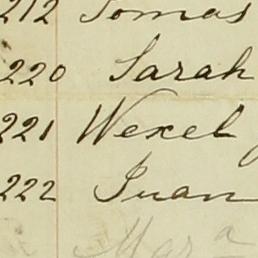 212 Tomas
220 Sarah
221 Wexel
222 Juan